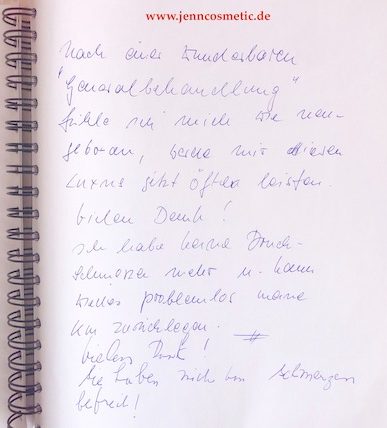 www.jenncosmetic.de
Nach einer wunderbaren
"Generalbehandlung"
fühle ich mich wie neu-
geboren, werde mir diesen
Luxus jetzt öfter leisten.
Vielen Dank!
Ich habe keine Druck-
schmerzen mehr u. kann
wieder problemlos meine
km zurücklegen.
Vielen Dank!
Sie haben mich von Schmerzen
befreit!